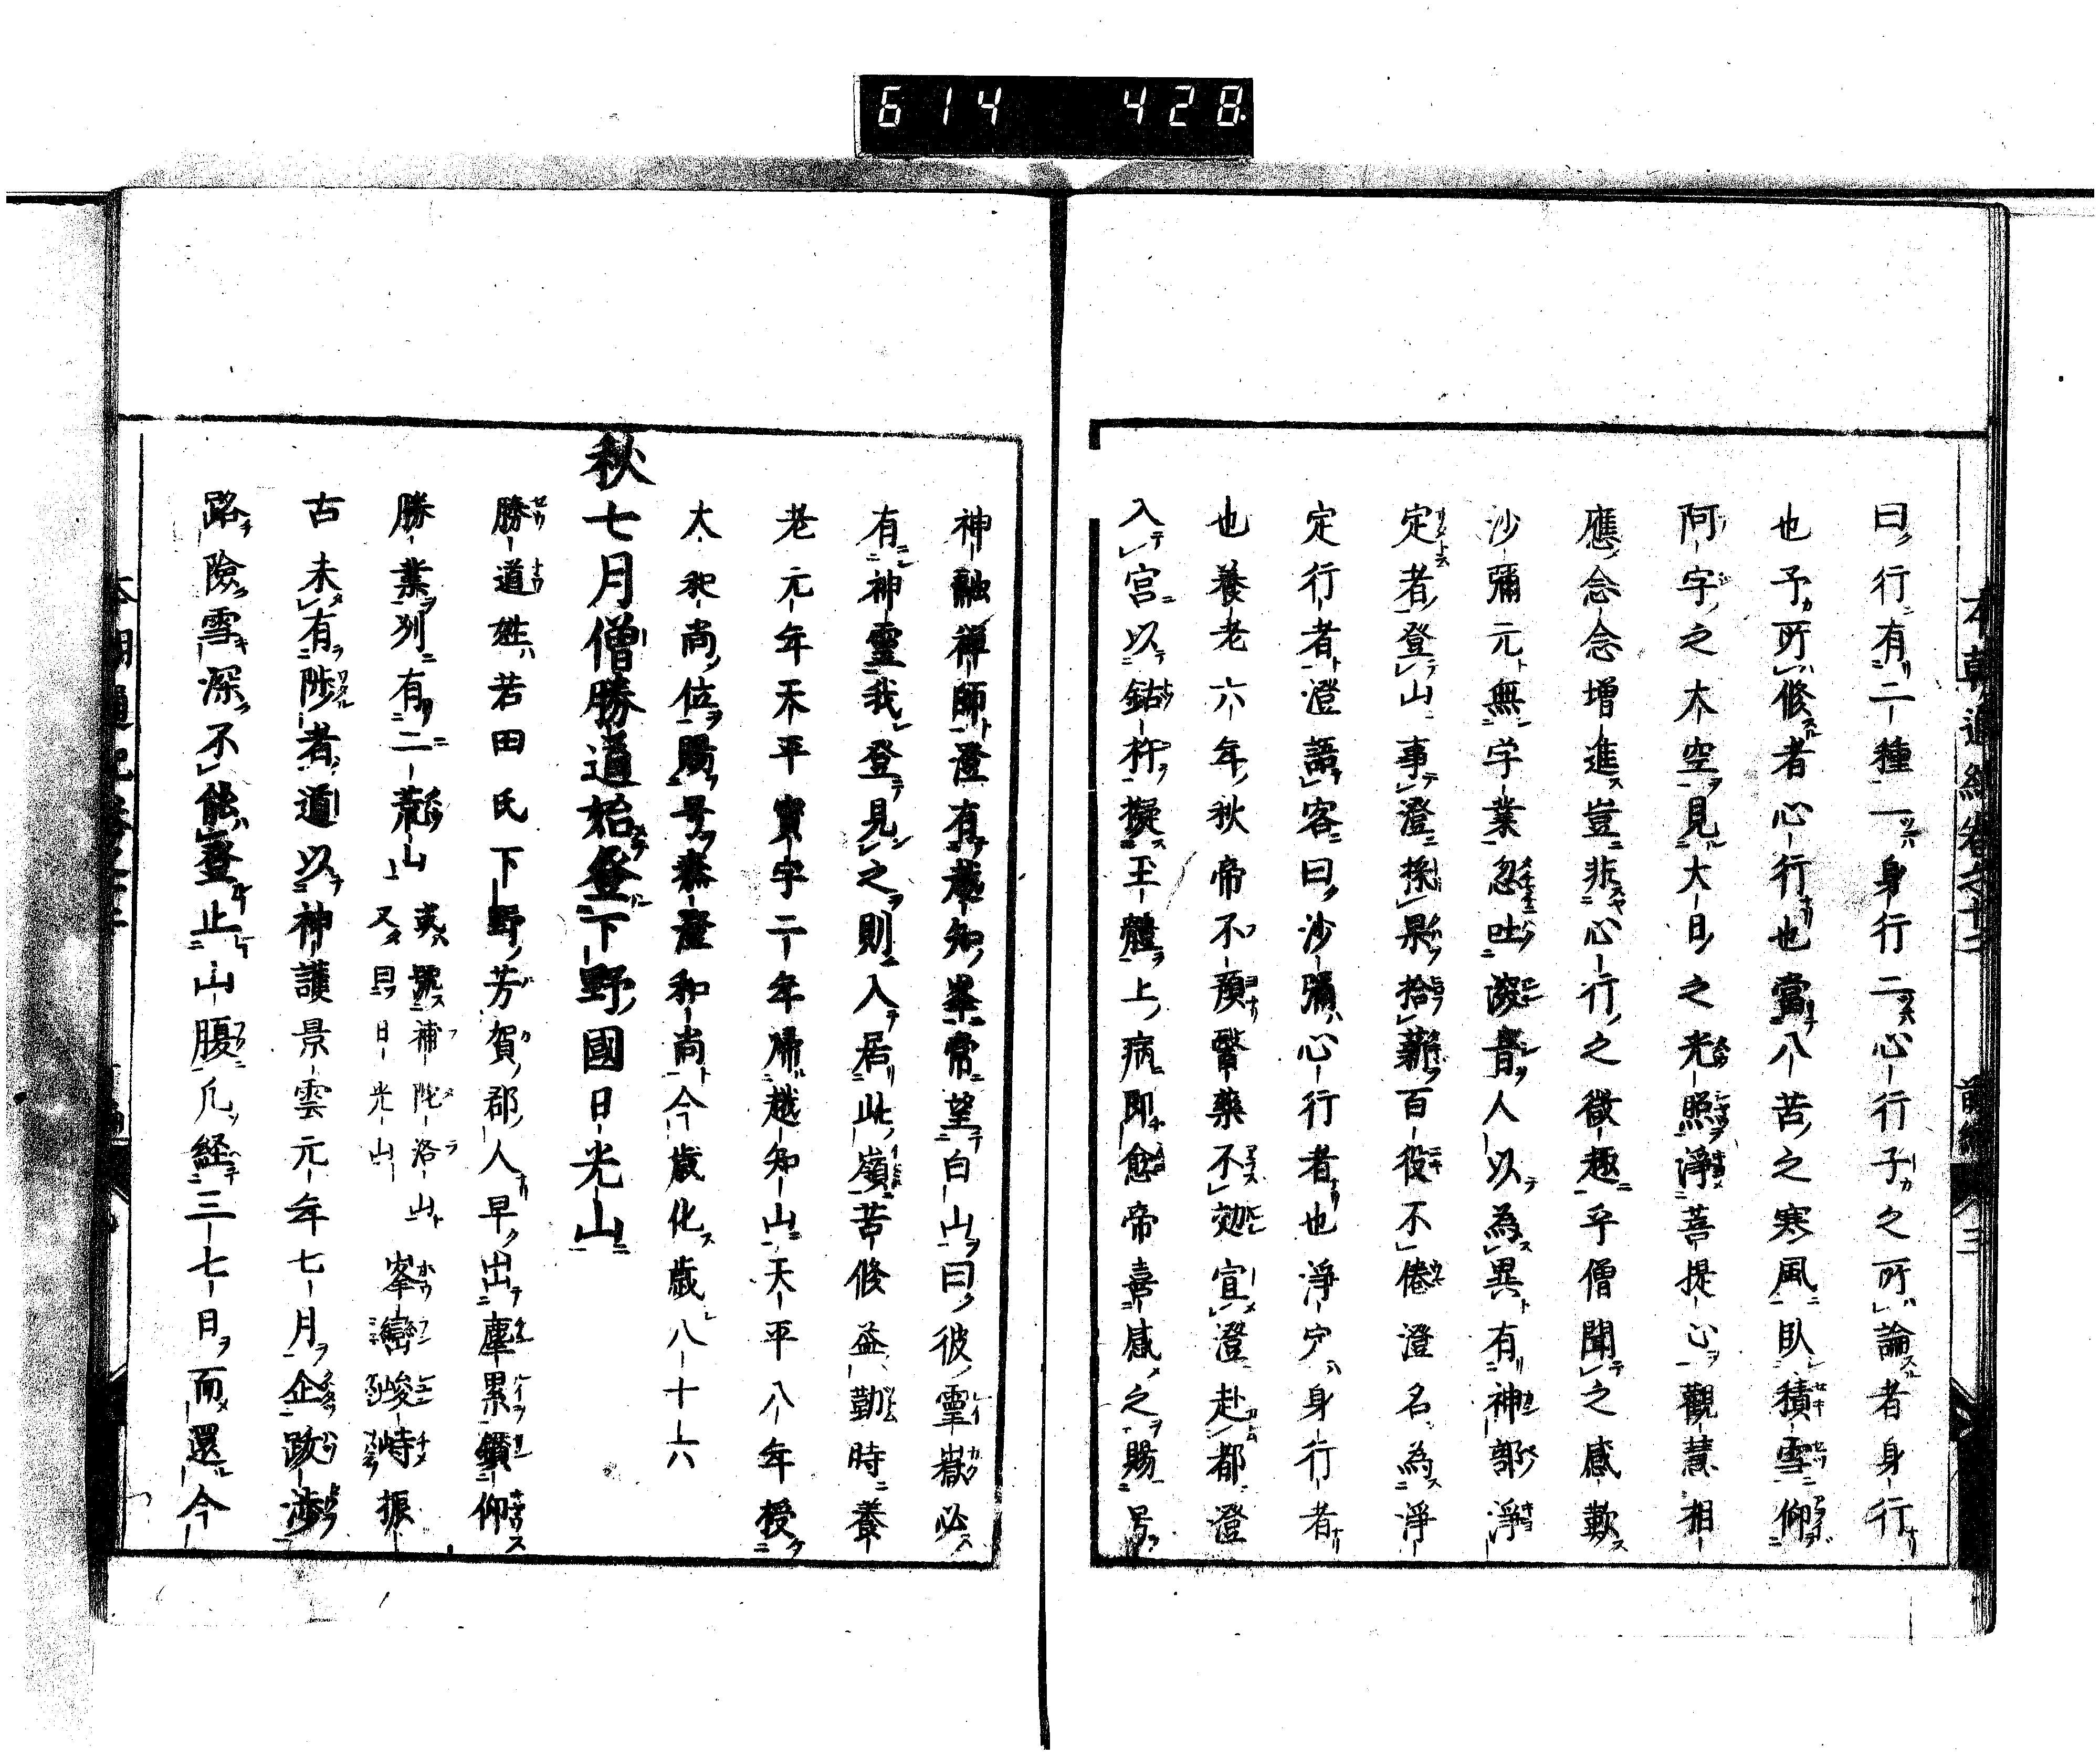 614 428
曰行有二種一身行二心行子之所論者身行
也予所修者心行也當八苦之寒風臥積雪仰
阿字之大空見大日之光照淨菩提心觀慧相
應念念增進豈非心行之徴趣乎僧聞之感歎
沙彌元無学業忽吐梵音人以為異有神部淨
定者登山事澄採果拾薪百役不倦澄名為淨
定行者澄語客曰沙彌心行者也淨定身行者
也養老六年秋帝不預醫藥不効宣澄赴都澄
入宮以鈷杵擬王體上病即愈帝喜感之賜号
神融禅師澄有越知峯常望白山曰彼霊嶽必
有神靈我登見之則入居此嶺苦修益勤時養
老元年天平寳字二年歸越知山天平八年授
大和尚位賜号泰澄和尚今歳化歳八十六
秋七月僧勝道始登下野國日光山
勝道姓若田氏下野芳賀郡人早出塵累鑽仰
勝業列有二荒山
或號補陀洛山
又曰日光山
峯巒峻峙振
古未有陟者道以神護景雲元年七月企跋渉
路險雪深不能登止山腹凡経三七日而還今